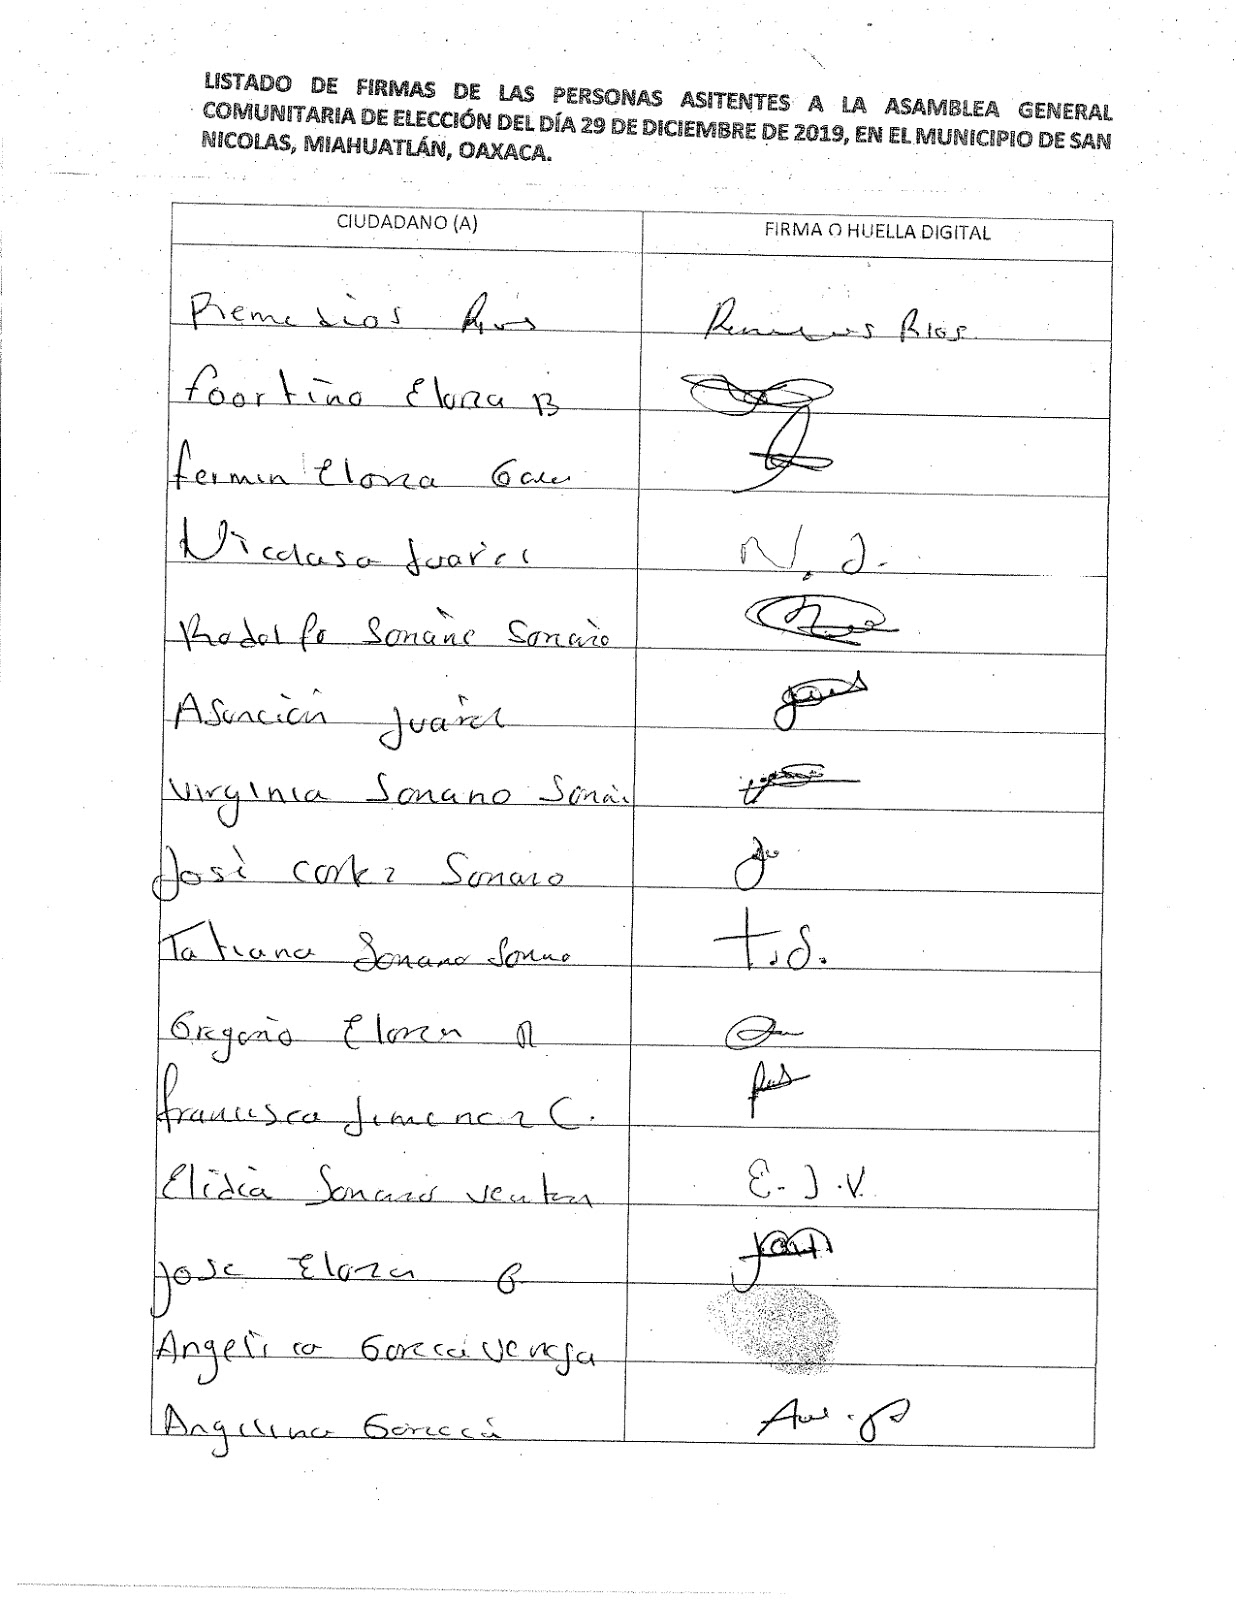 LISTADO DE FIRMAS DE LAS PERSONAS ASITENTES A LA ASAMBLEA GENERAL
COMUNITARIA DE ELECCIÓN DEL DÍA 29 DE DICIEMBRE DE 2019, EN EL MUNICIPIO DE SAN
NICOLAS, MIAHUATLÁN, OAXACA.
CIUDADANO (A) FIRMA O HUELLA DIGITAL
Remedios Rios Rios
foortino Elorza B
fermin Elorza
Nicolasa Juarez N. J.
Rodolfo
Asuncion Juarez
Virginia Soriano
José cortez Soriano
Tatiana Soriano t.S.
Gregorio Elorza R
francisca Jimenez C.
Elidia Soriano ventura E. J. V.
Jose Elorza G
Angelica Garcia
Angelina Garcia